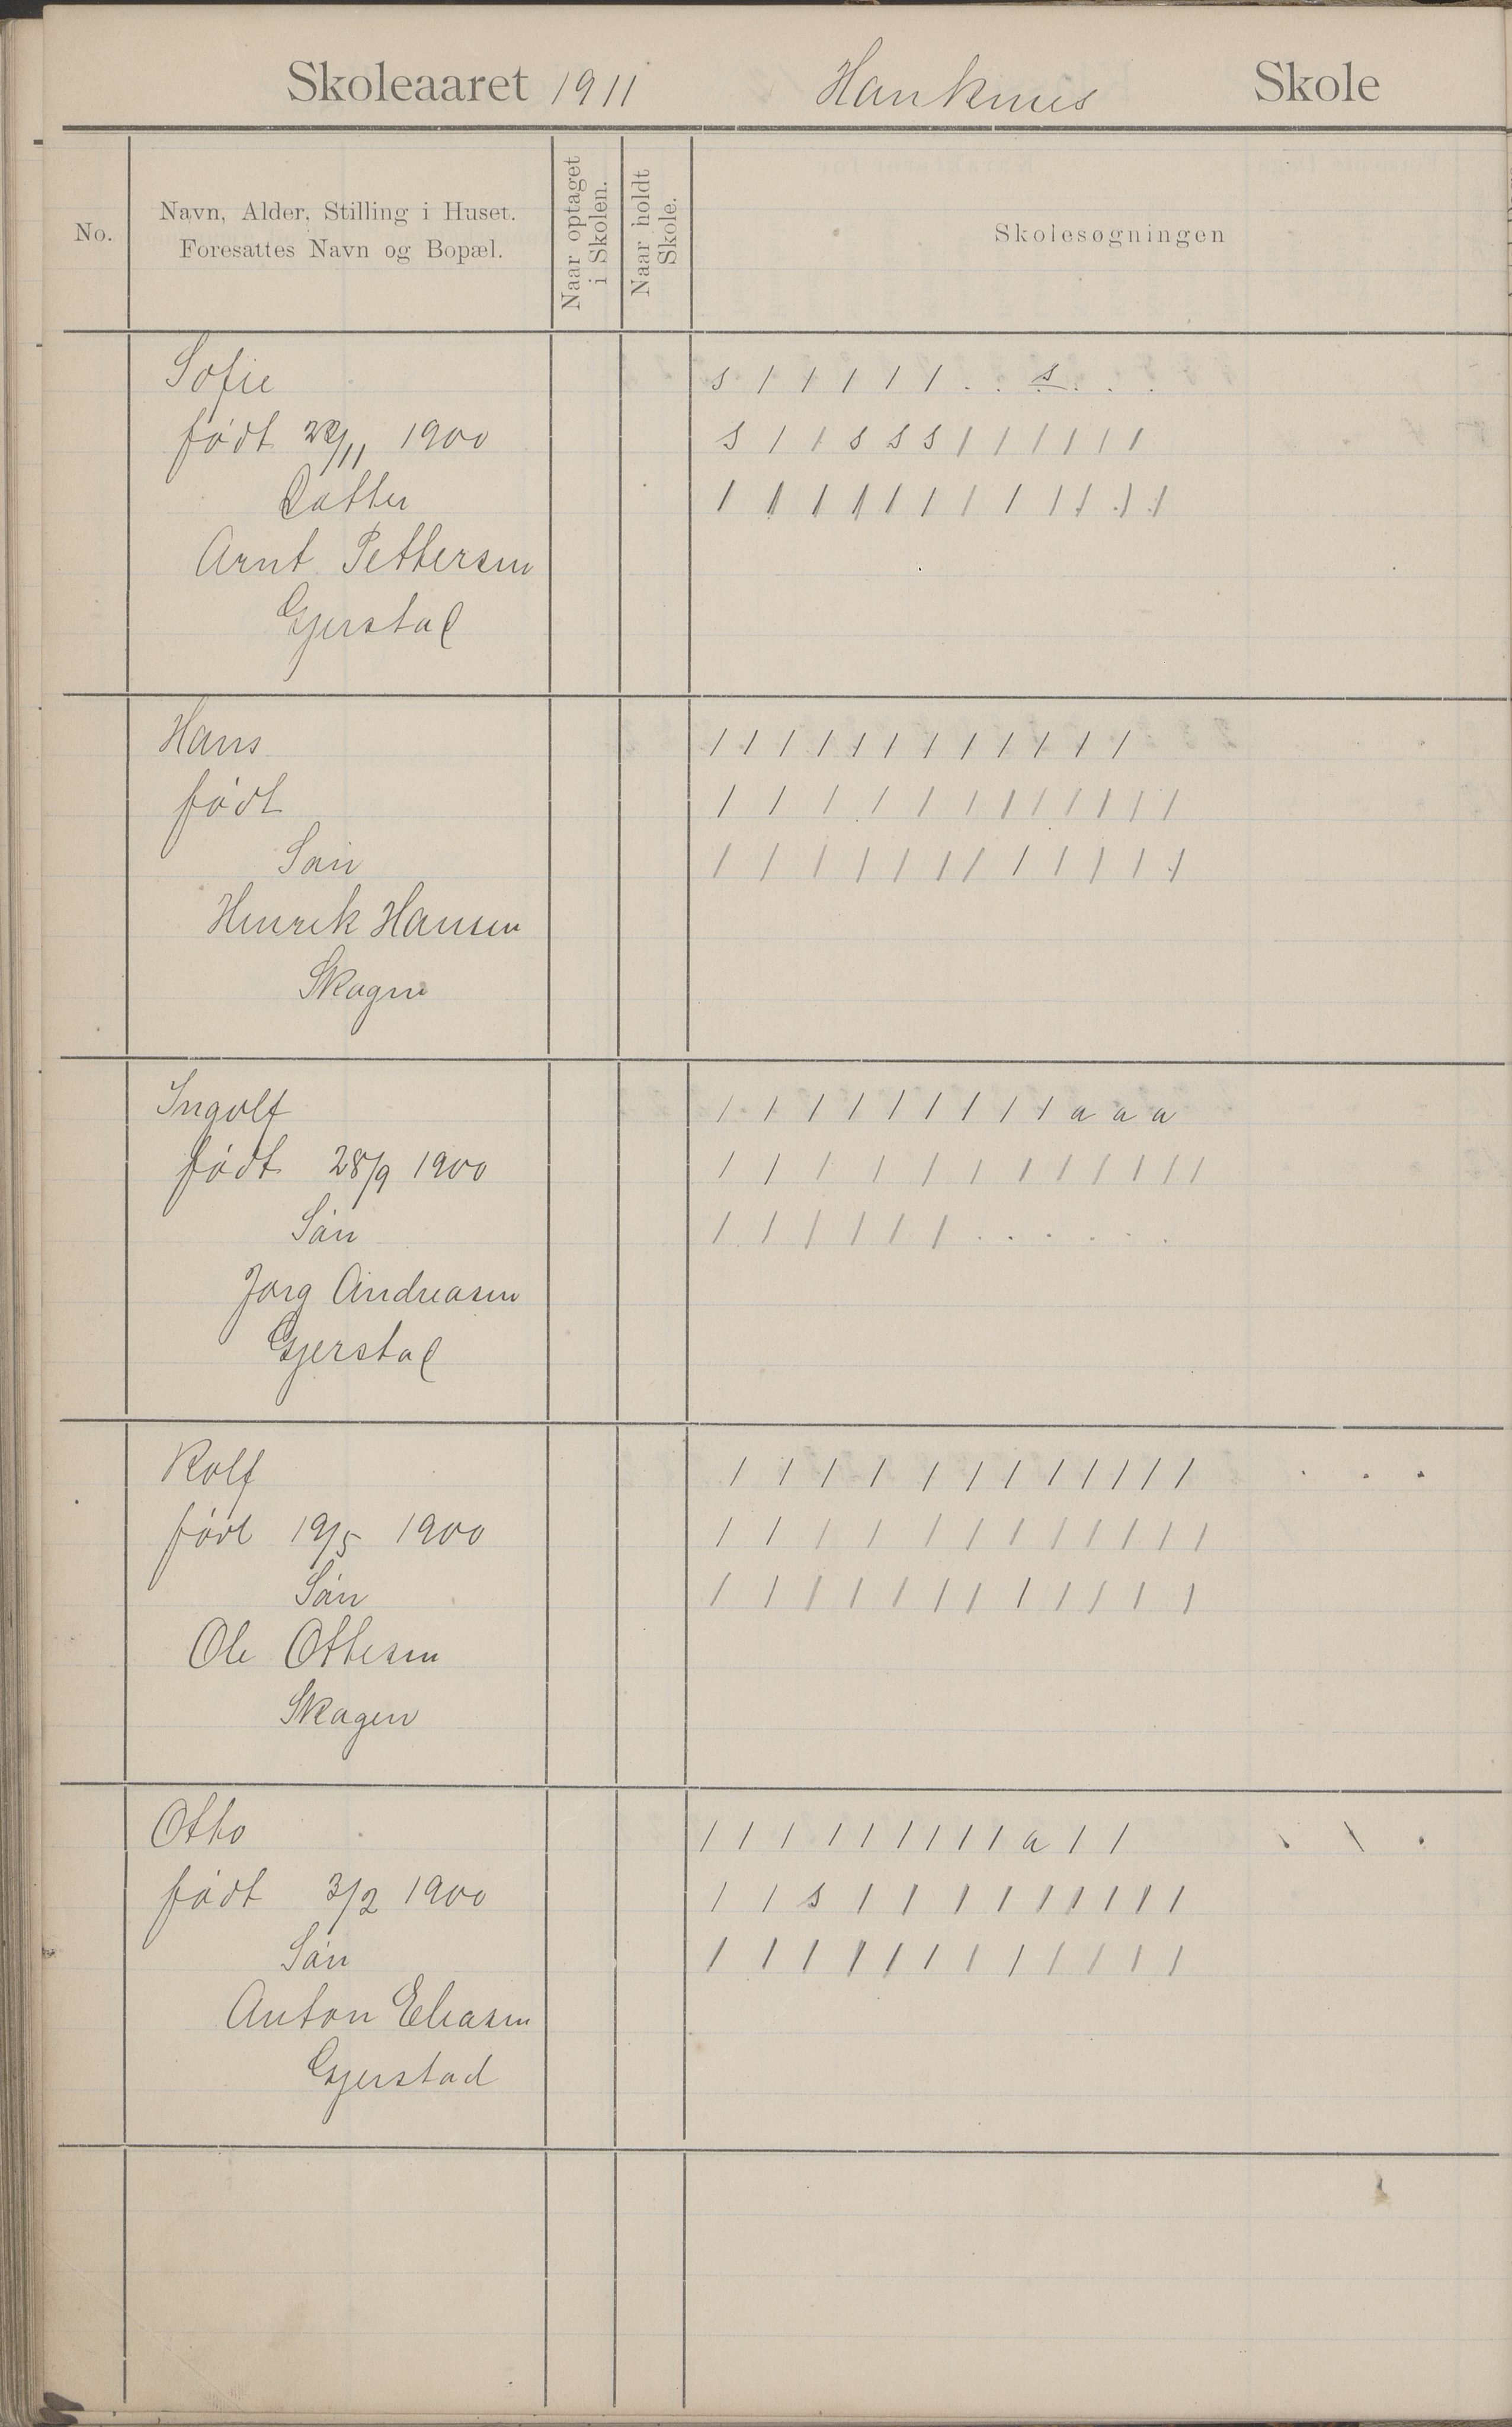 Skoleaaret 1911 Hanknes Skole
No.
Navn, Alder, Stilling i Huset.
Foresattes Navn og Bopæl.
Naar optaget
i Skolen.
Naar holdt
Skole.
Skolesøgningen
Sofie s / / / / / . . s . . .
født /11 1900 s / / s s s / / / / / /
Datter / / / / / / / / / / / /
Arnt Pettersen
Gjerstad
Hans / / / / / / / / / / / /
født / / / / / / / / / / / /
Søn / / / / / / / / / / / /
Henrik Hansen
Skagen
Ingolf / / / / / / / / / a a a
født 28/9 1900 / / / / / / / / / / / /
Søn / / / / / / . . . . . .
Jørg Andreasen
Gjerstad
Rolf / / / / / / / / / / / / . . .
født 19/5 1900 / / / / / / / / / / / /
Søn / / / / / / / / / / / /
Ole Ottesen
Skagen
Otto / / / / / / / / / a / / . \ .
født 3/2 1900 / / s / / / / / / / / /
Søn / / / / / / / / / / / /
Anton Eliasen
Gjerstad